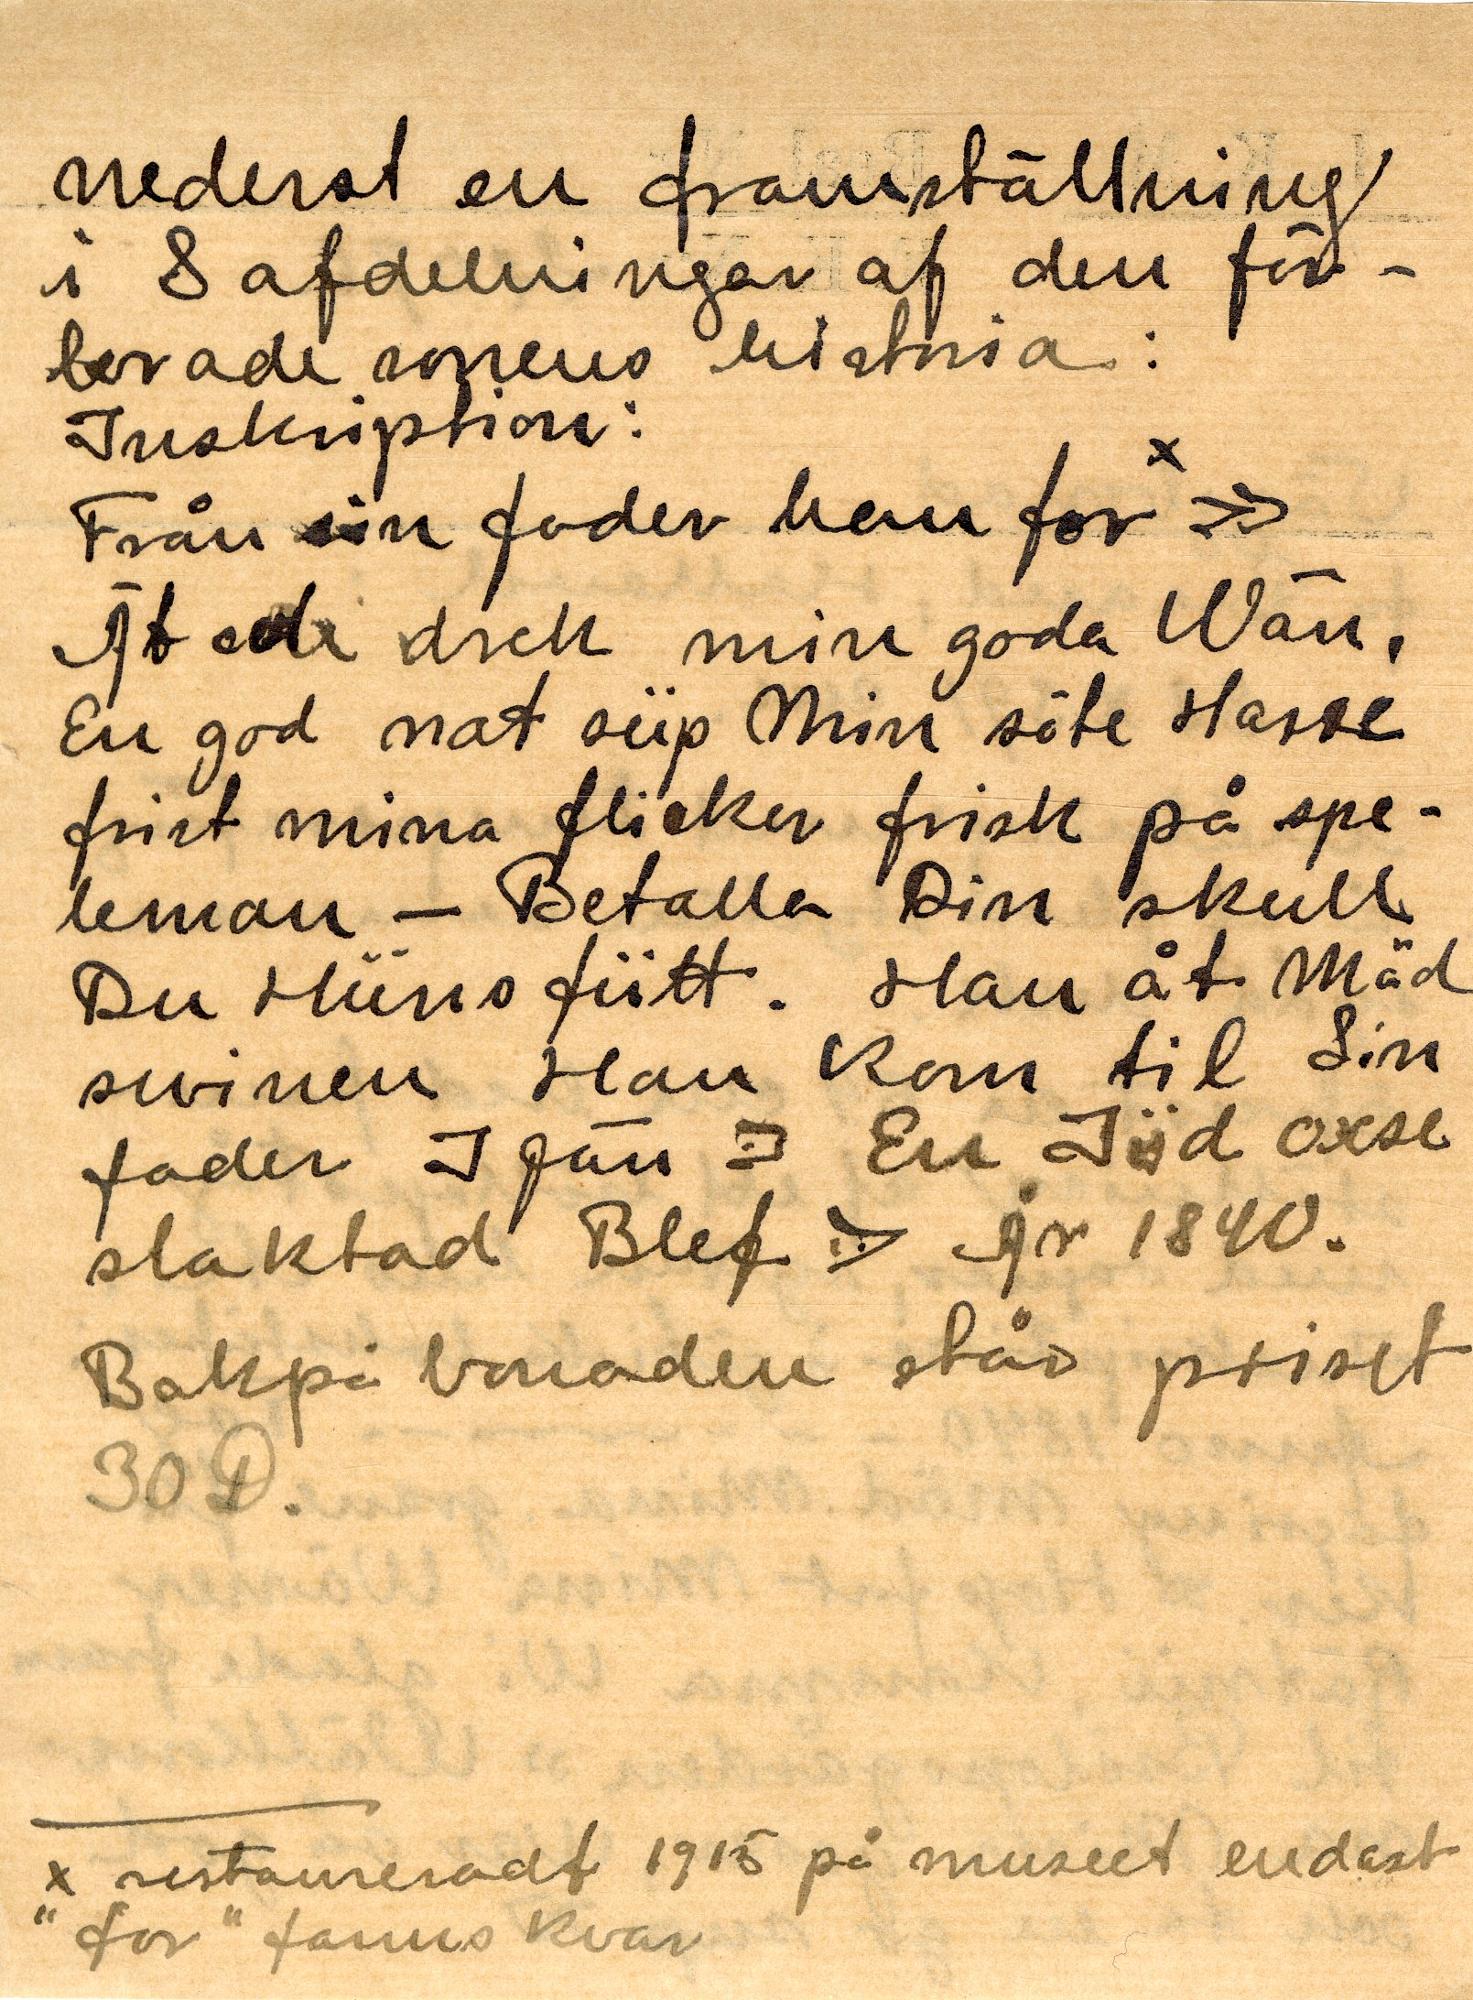 nederst en framställning
i 8 afdelningar af den för-
lorade sonens historia:
Inskription:
Från sin fader han for x
Ät och drek min goda Wän,
En god nat süp Min söte Hasse
frist mina flicker frisk på spe-
leman — Betalla Din skull
Du Hünsfütt. Han åt Mäd
swinen Han Kom til Sin
fader I jän En Jüd oxse
slaktad Blef År 1840.
Bakpå bonaden står priset
30 D.
x restaureradt 1915 på museet endast
"for" fanns kvar